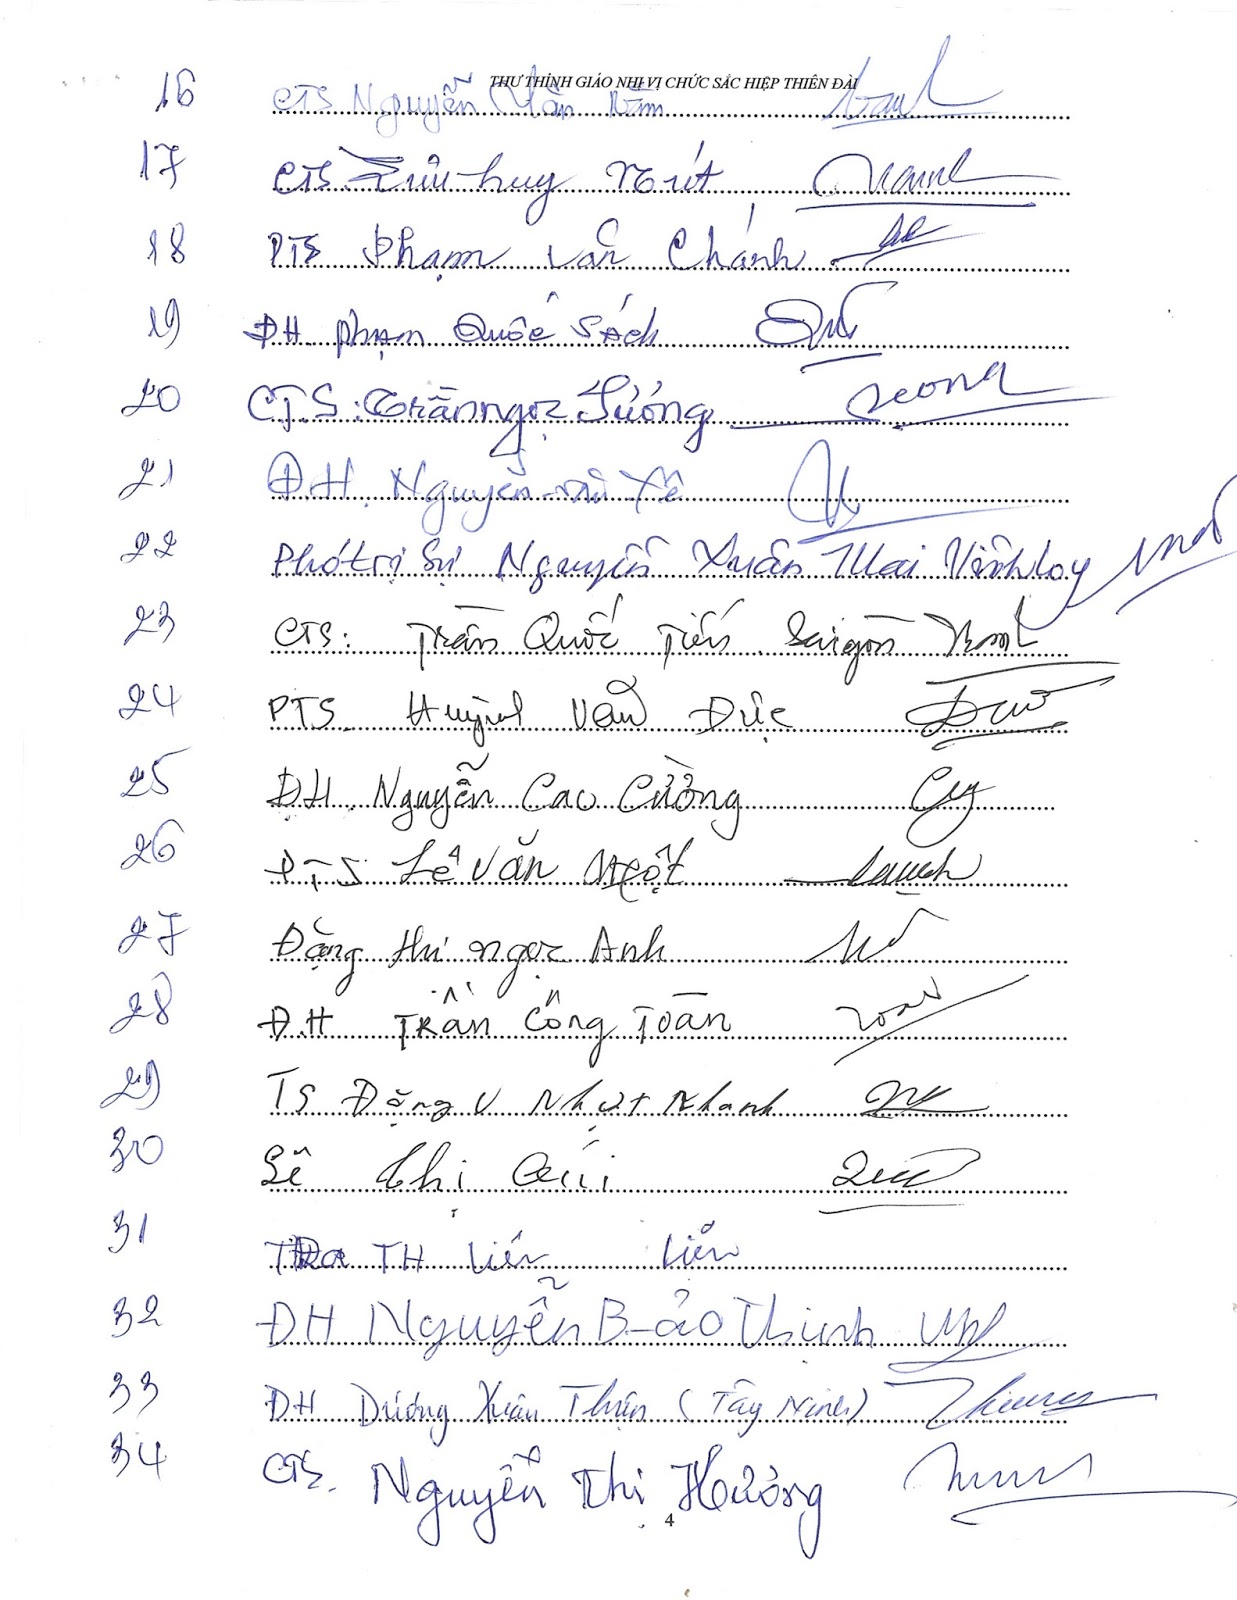 THƯ THỈNH GIÁO NHỊ VỊ CHỨC SẮC HIỆP THIÊN ĐÀI
16 CTS Nguyễn Văn Năm
17 CTS Lưu huy Mút
18 PTS Phạm Văn Chánh
19 ĐH phạm Quốc Sách
20 CTS: Trần ngọc Sương
21 ĐH Nguyễn Xê
22 Phó trị sự Nguyễn Xuân Mai Vĩnh Long
23 CTS: Trần Quốc Tiến Saigòn
24 PTS Huỳnh Văn Đức
25 ĐH Nguyễn Cao Cường
26 PTS Lê Văn Một
27 Đặng thị ngọc Anh
28 ĐH Trần Công Toàn
29 TS Đặng V Nhựt Khanh
30 Lê thị Quí
31 TH Liên
32 ĐH Nguyễn Bảo Thịnh
33 ĐH Dương Xuân Thuận (Tây Ninh)
34 CTS. Nguyễn Thị Hưởng
4